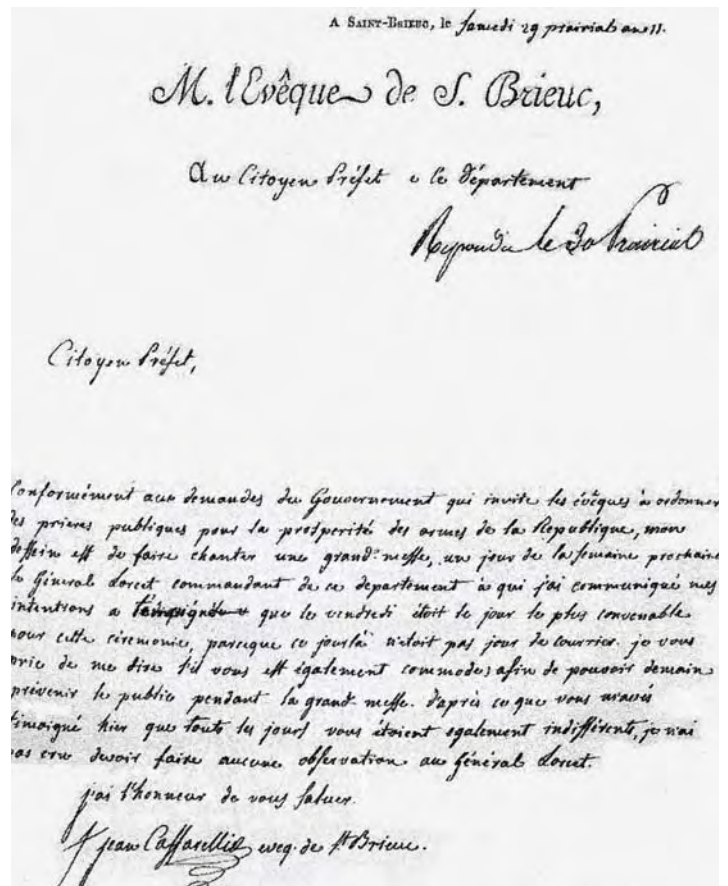 A SAINT-BRIEUC, le Samedi 29 prairial an 11.
M. l'Evêque de S. Brieuc,
Au Citoyen Préfet e ce Département
Repondu le 30 Prairial
Citoyen Préfet,
Conformément aux demandes du Gouvernement qui invite les évêques à ordonner
des prieres publiques pour la prosperité des armes de la Republique, mon
dessein est de faire chanter une grand'messe, un jour de la semaine prochaine
le Général Lorcet commandant de ce departement à qui j'ai communiqué mes
intentions a témoigné que le vendredi étoit le jour le plus convenable
pour cette ceremonie, parceque ce jourlà n'etoit pas jour de courrier. je vous
prie de me dire s'il vous est également commode, afin de pouvoir demain
prévenir le public pendant la grand-messe. d'après ce que vous m'avés
timoigné hier que touts les jours vous étoient egalement indifférents, je n'ai
pas cru devoir faire aucune observation au Général Lorcet.
j'ai l'honneur de vous saluer.
+ jean Caffarelli eveq. de St Brieuc.